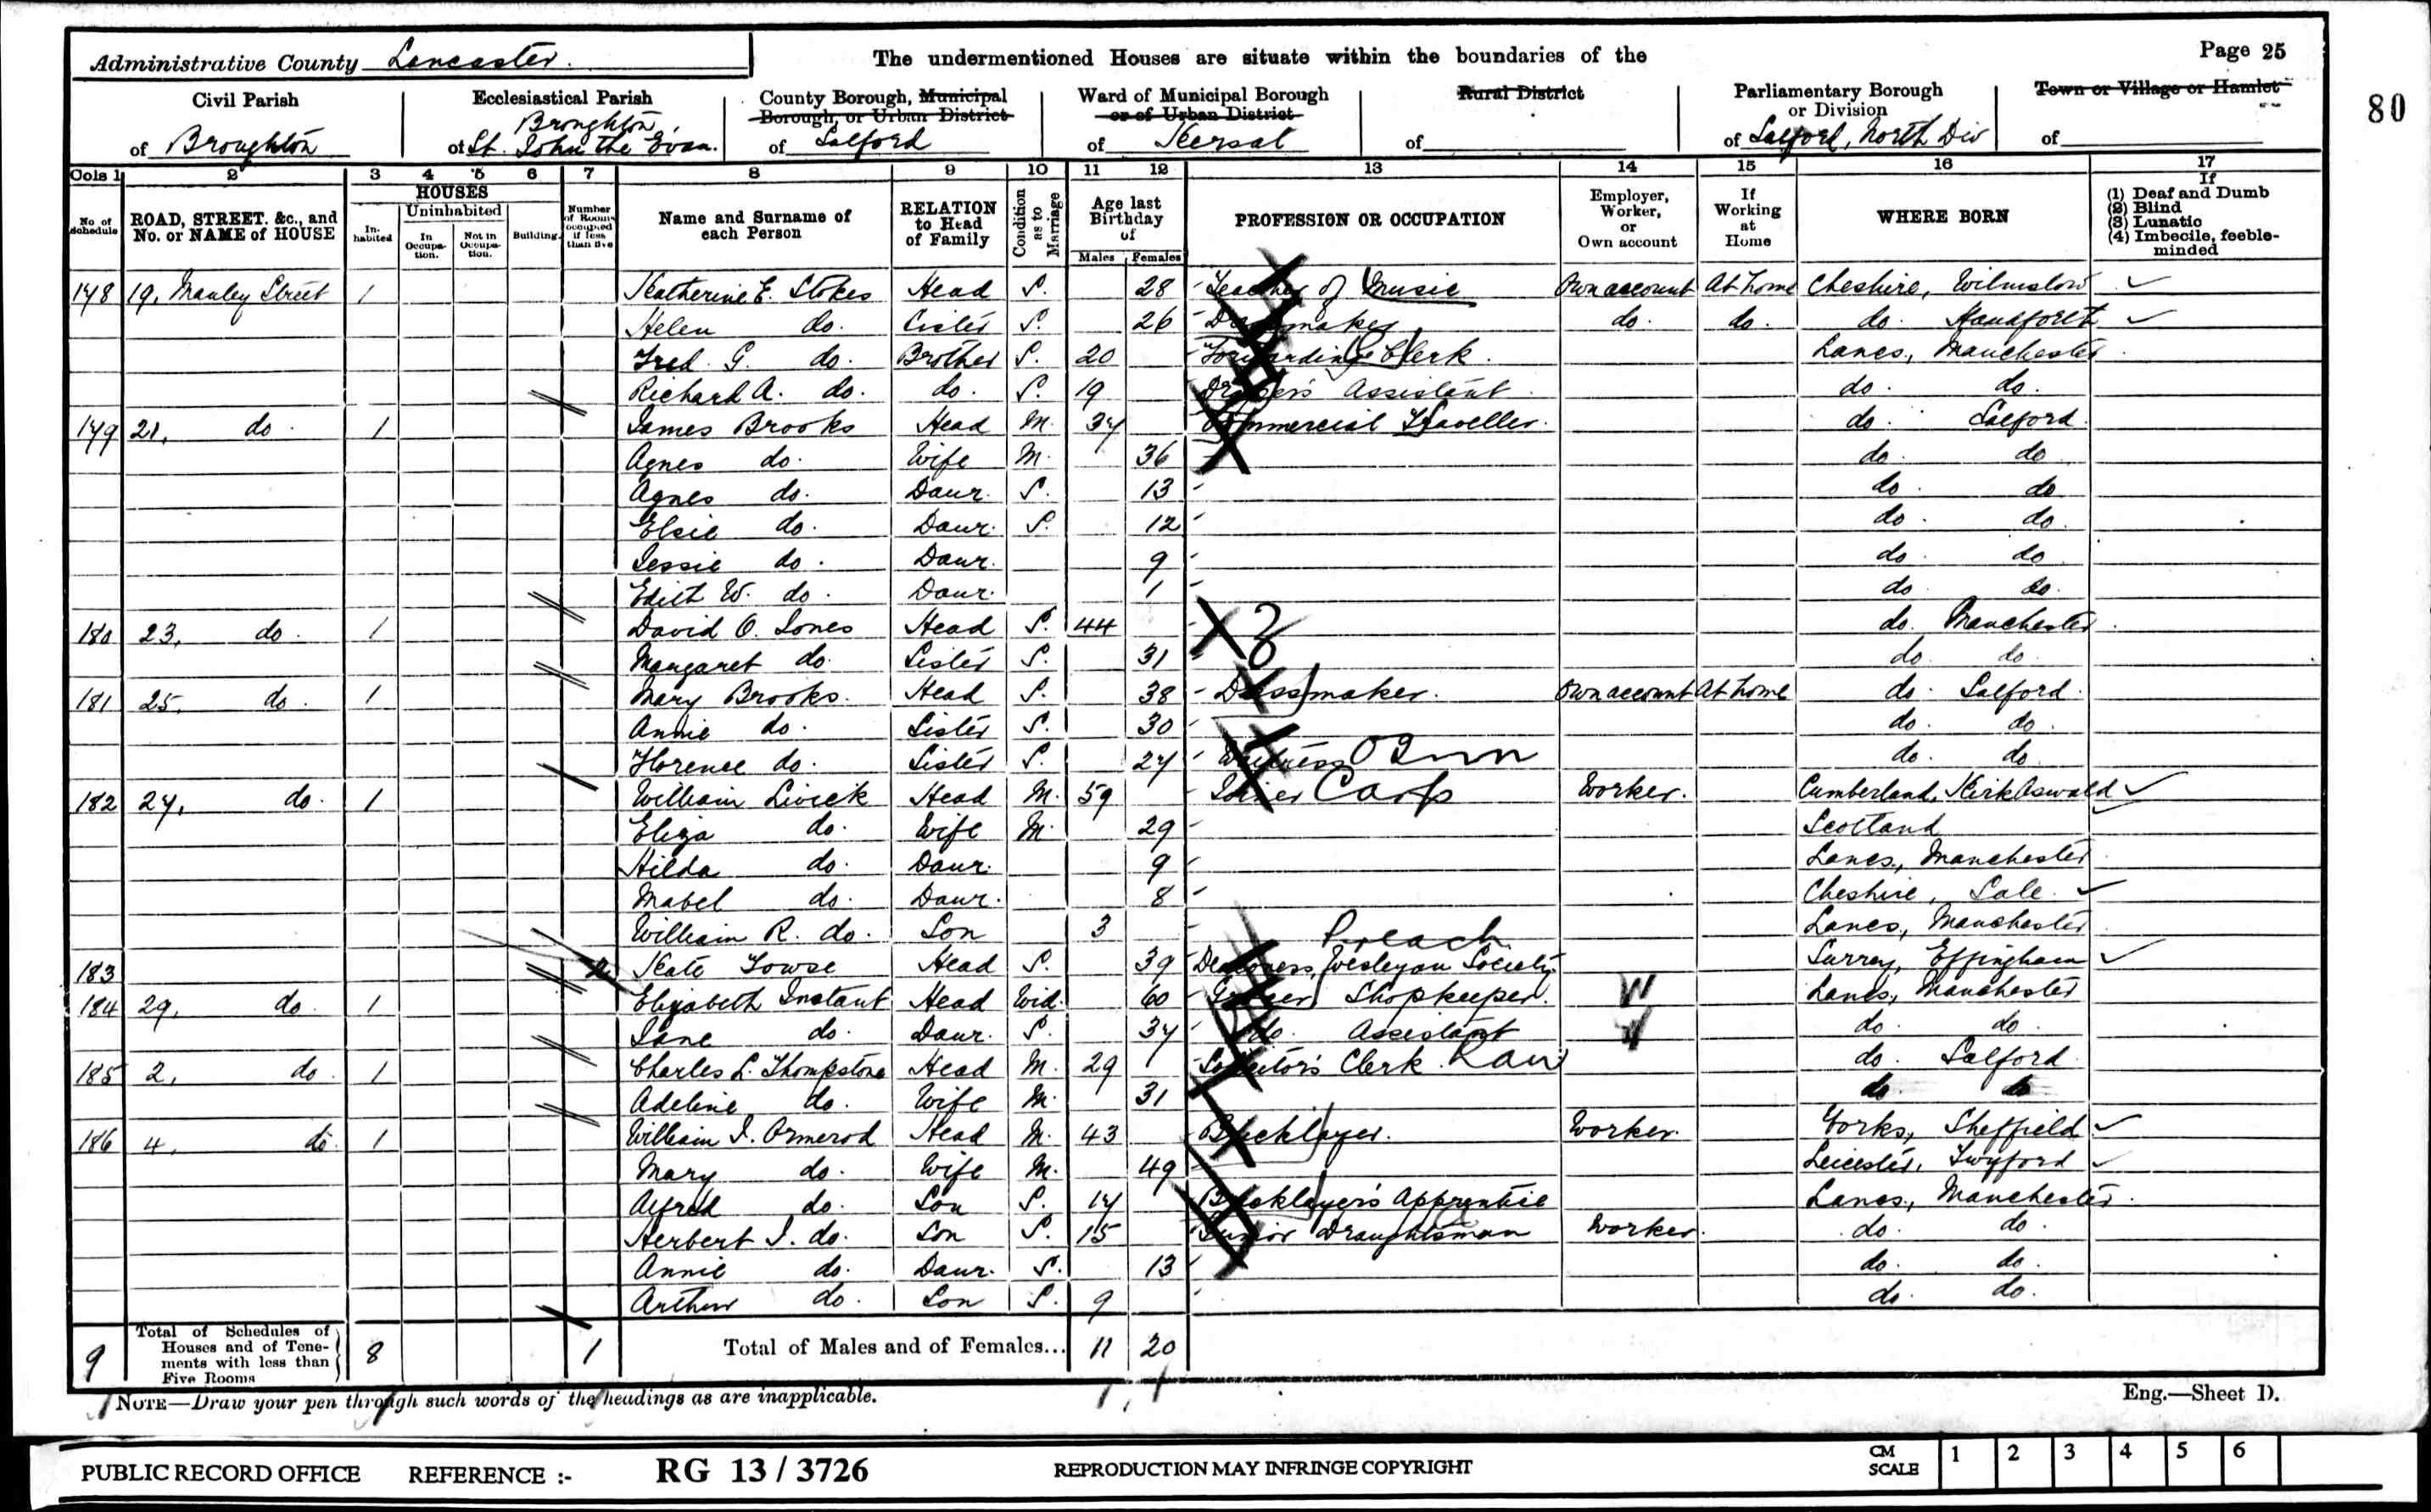 Administrative County Lancaster. The undermentioned Houses are situate within the boundaries of the Page 25
80
Civil Parish of Broughton
Ecclesiastical Parish of Broughton, St. John the Evan.
County Borough, Municipal Borough, or Urban District of Salford
Ward of Municipal Borough or of Urban District of Kersal
Rural District of
Parliamentary Borough or Division of Salford, North Div
Town or Village or Hamlet of
Cols 1 2 3 4 5 6 7 8 9 10 11 12 13 14 15 16 17
No. of Schedule
ROAD, STREET, &c., and No. or NAME of HOUSE
HOUSES
Inhabited
Uninhabited
In Occupation.
Not in Occupation.
Building.
Number of Rooms occupied if less than five
Name and Surname of each Person
RELATION to Head of Family
Condition as to Marriage
Age last Birthday of
Males Females
PROFESSION OR OCCUPATION
Employer, Worker, or Own account
If Working at Home
WHERE BORN
If
(1) Deaf and Dumb
(2) Blind
(3) Lunatic
(4) Imbecile, feeble-minded
178 19, Manley Street 1 Katherine E. Stokes Head S. 28 Teacher of Music Own account At home Cheshire, Wilmslow
Helen do. Sister S. 26 Dressmaker do. do. do. Handforth
Fred. G. do. Brother S. 20 Forwarding Clerk. Lancs., Manchester
Richard A. do. do. S. 19 Draper's Assistant do. do.
179 21, do. 1 James Brooks Head M. 37 Commercial Traveller. do. Salford
Agnes do. Wife M. 36 do. do
Agnes do. Daur. S. 13 do. do
Elsie do. Daur. S. 12 do. do.
Jessie do. Daur. 9 do. do
Edith W. do. Daur. 1 do. do.
180 23, do. 1 David O. Jones Head S. 44 do. Manchester
Margaret do. Sister S. 31 do. do.
181 25, do. 1 Mary Brooks. Head S. 38 Dressmaker. Own account At home do. Salford.
Annie do. Sister S. 30 do. do.
Florence do. Sister S. 27 Waitress do. do.
182 27, do. 1 William Livick Head M. 59 Joiner Carp Worker. Cumberland, Kirkoswald
Eliza do. Wife M. 29 Scotland
Hilda do. Daur. 9 Lancs., Manchester
Mabel do. Daur. 8 Cheshire, Sale.
William R. do. Son 3 Lancs, Manchester
Preach
183 Kate Towse Head S. 39 Deaconess, Wesleyan Society Surrey, Effingham
184 29, do. 1 Elizabeth Instant Head Wid. 60 Grocer Shopkeeper. W Lancs, Manchester
Jane do. Daur. S. 37 do. Assistant W do. do.
185 2, do. 1 Charles L. Thompstone Head M. 29 Solicitor's Clerk. Law do. Salford
Adeline do. Wife M. 31 do. do
186 4, do. 1 William I. Ormerod Head M. 43 Bricklayer. Worker. Yorks, Sheffield
Mary do. Wife M. 49 Leicester, Twyford
Alfred do. Son S. 17 Bricklayer's Apprentice Lancs., Manchester.
Herbert I. do. Son S. 15 Junior Draughtsman Worker. do. do.
Annie do. Daur. S. 13 do. do.
Arthur do. Son S. 9 do. do.
9 Total of Schedules of Houses and of Tenements with less than Five Rooms 8 1 Total of Males and of Females... 11 20
NOTE—Draw your pen through such words of the headings as are inapplicable. Eng.—Sheet D.
PUBLIC RECORD OFFICE REFERENCE :- RG 13 / 3726 REPRODUCTION MAY INFRINGE COPYRIGHT CM SCALE 1 2 3 4 5 6